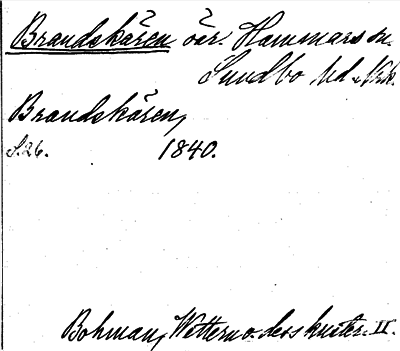 Brandskären öar. Hammars sn.
Sundbo hd. Nrk.
Brandskären,
S. 26. 1840.
Bohman, Wettern o. dess kuster. II.